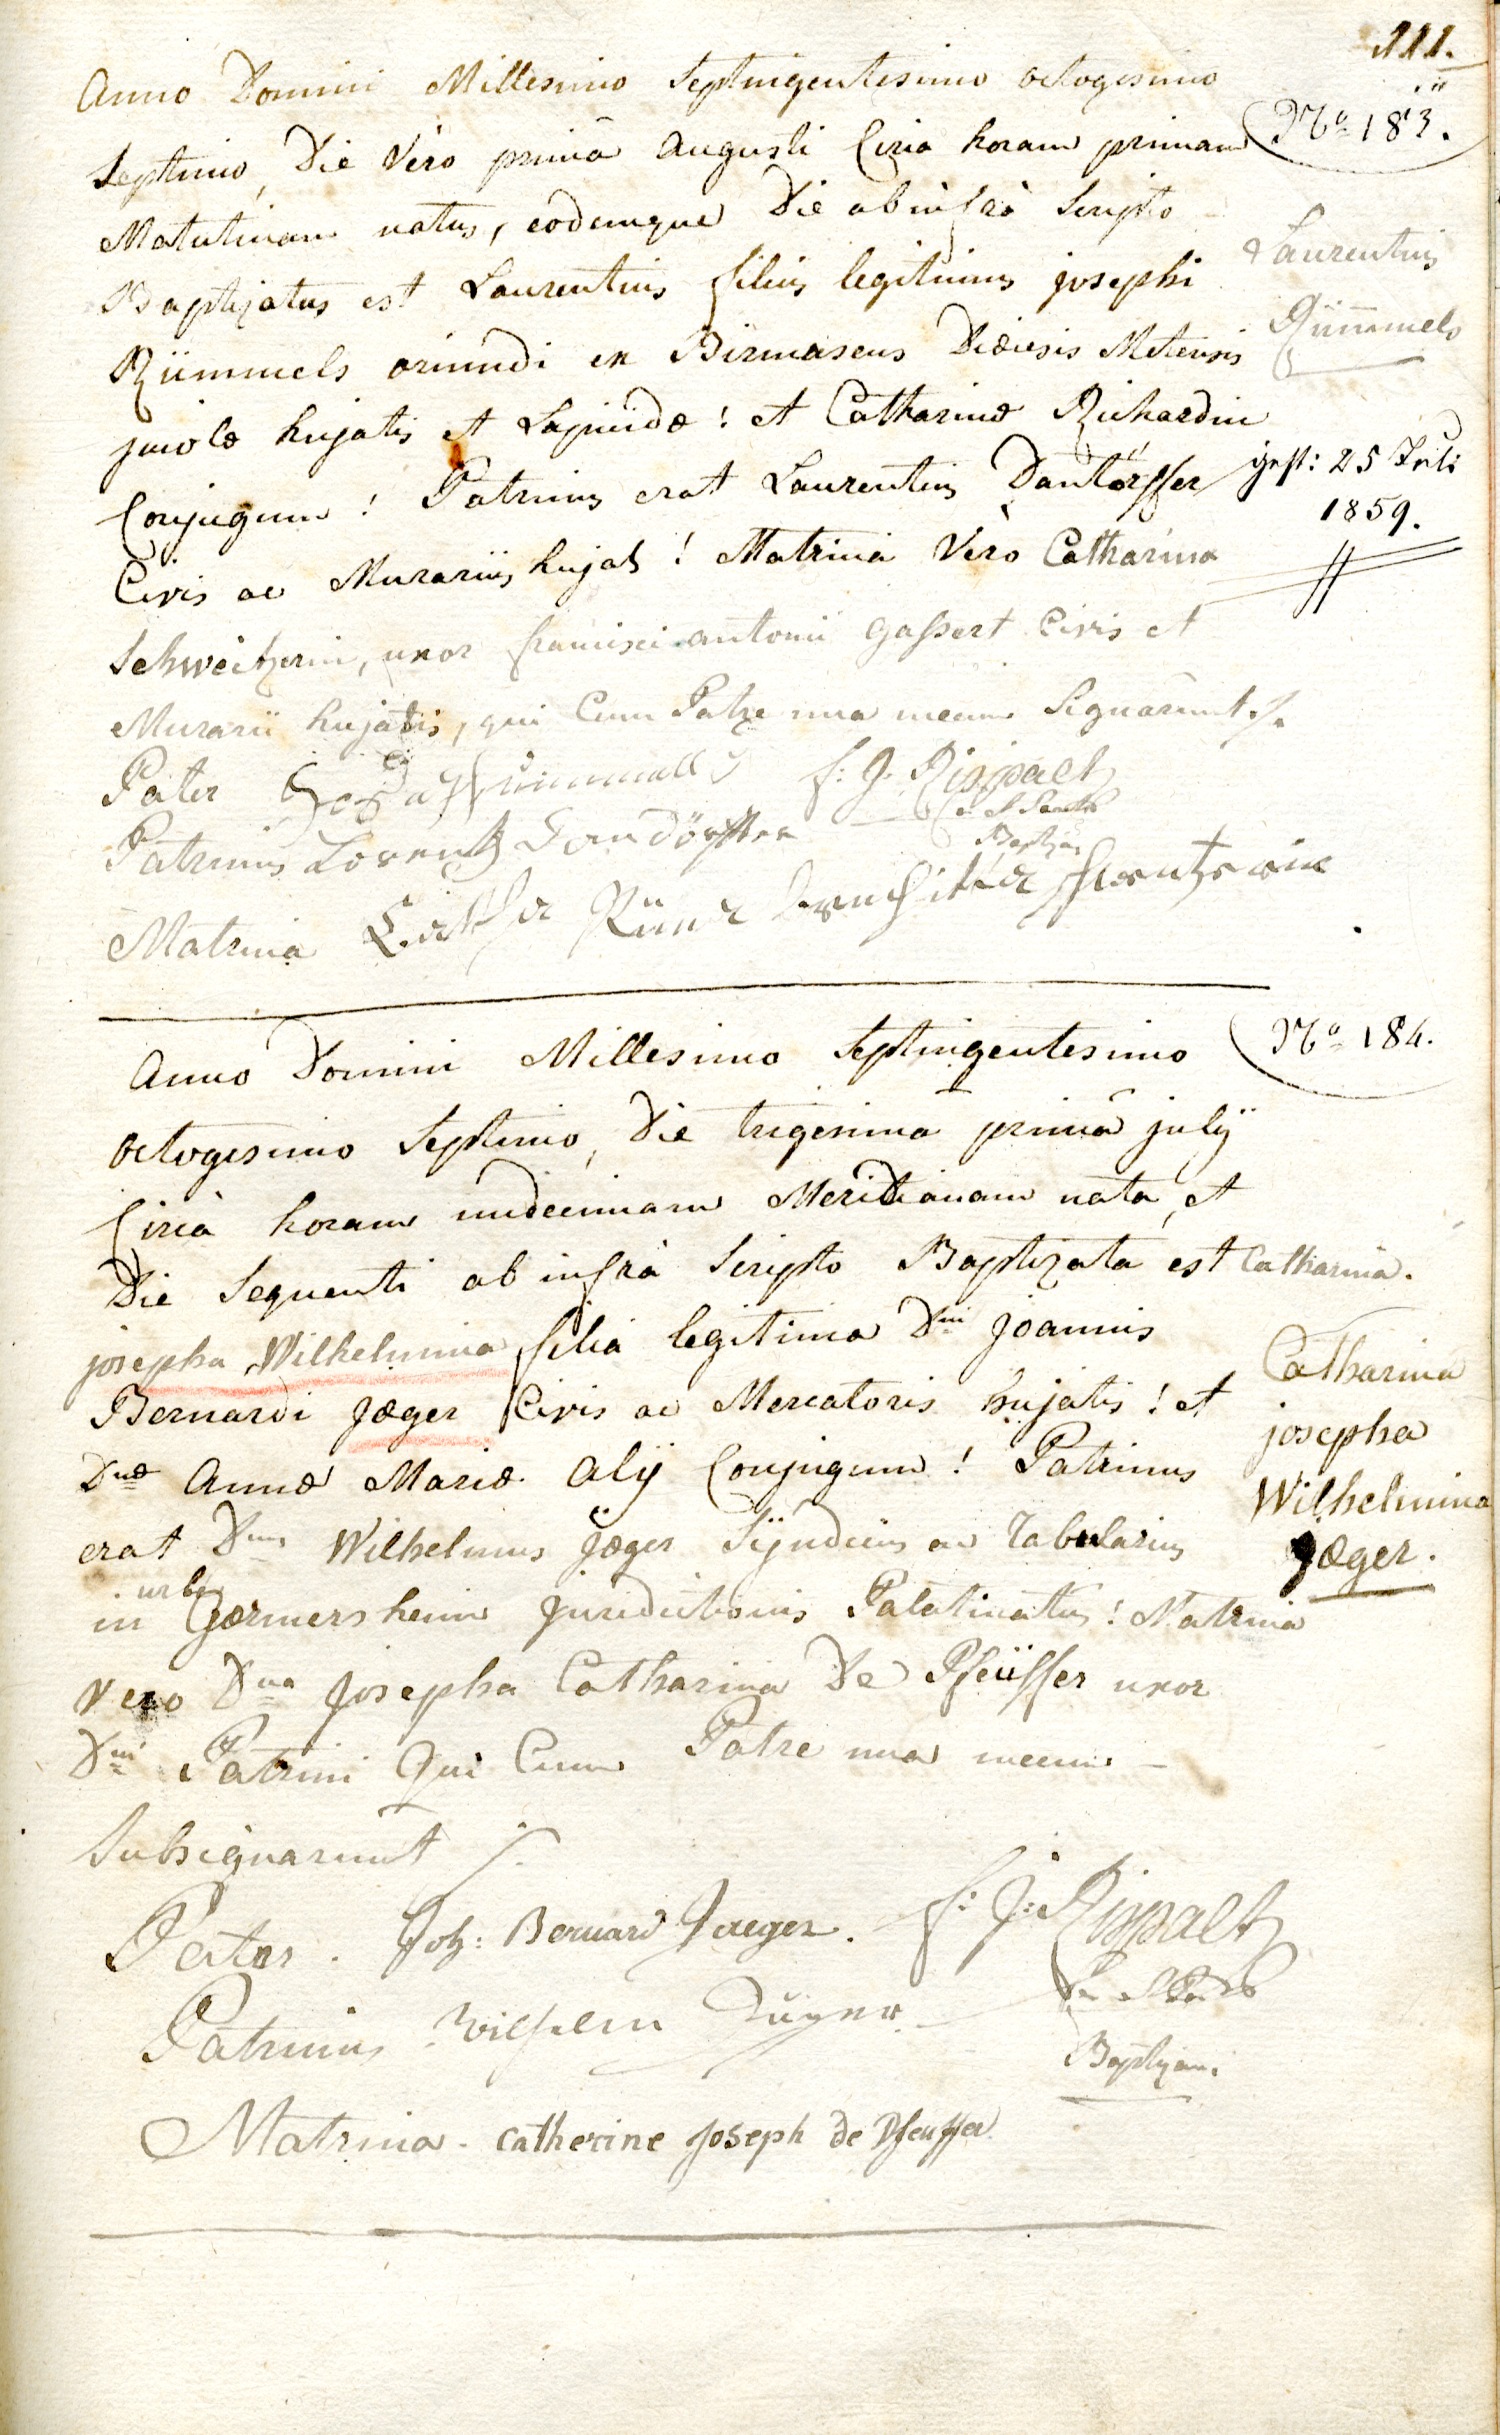 111.
Anno Domini Millesimo Septingentesimo octogesimo
Septimo, Die Vero primâ Augusti Circa horam primam
Matutinam natus, eodemque Die ab infrà Scripto
Baptizatus est Laurentius filius legitimus josephi
Rümmels oriundi ex Birmasens Diœcesis Metensis
jncolæ hujatis et Lapicidæ ! et Catharinæ Richardin
Conjugum ! Patrinus erat Laurentius Dantörffer
Civis ac Murarius hujas ! Matrina Vero Catharina
Schweitzerin, uxor francisci antonii Gassert Civis et
Murarii hujatis, qui Cum Patre una mecum Signarunt
No 183.
Laurentius
Rümmels
gest: 25 Juli
1859.
Pater
f: J. Rispalt
Patrinus Lorentz Dandörffer
Baptizans
Matrina
No 184.
Anno Domini Millesimo Septingentesimo
octogesimo Septimo, Die trigesima primâ julÿ
Circa horam undecimam Meridianam nata, et
Die Sequenti ab infrà Scripto Baptizata est Catharina.
josepha Wilhelmina filia legitima Dni Joannis
Bernardi Jæger Civis ac Mercatoris hujatis ! et
Dnæ Annæ Mariæ Alÿ Conjugum ! Patrinus
erat Dnus Wilhelmus Jæger Sÿndicus ac Tabularius
in urbe Germersheim Jurisdictionis Palatinatus ! Matrina
vero Dna Josepha Catharina De Pfeüffer uxor
Dni Patrini Qui Cum Patre una mecum
Subsignarunt
Catharina
josepha
Wilhelmina
Jæger.
Pater. Joh: Bernard Jaeger. f: J: Rispalt
Patrinus Wilhelm
Baptizans
Matrina. Catherine Joseph de Pfeuffer